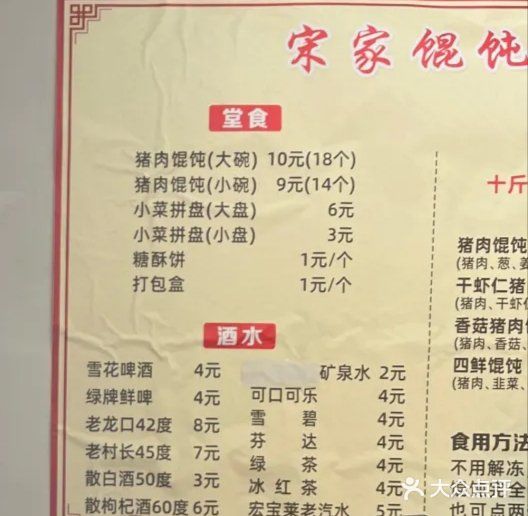 宋家馄饨
堂食
猪肉馄饨(大碗) 10元(18个)
猪肉馄饨(小碗) 9元(14个)
小菜拼盘(大盘) 6元
小菜拼盘(小盘) 3元
糖酥饼 1元/个
打包盒 1元/个
酒水
雪花啤酒 4元
绿牌鲜啤 4元
老龙口42度 8元
老村长45度 7元
散白酒50度 3元
散枸杞酒60度 6元
矿泉水 2元
可口可乐 4元
雪碧 4元
芬达 4元
绿茶 4元
冰红茶 4元
宏宝莱老汽水 5元
十斤
猪肉馄饨
(猪肉、葱、姜
干虾仁猪
(猪肉、干虾仁
香菇猪肉
(猪肉、香菇、
四鲜馄饨
(猪肉、韭菜、
食用方法
不用解冻
大众点评
也可点两